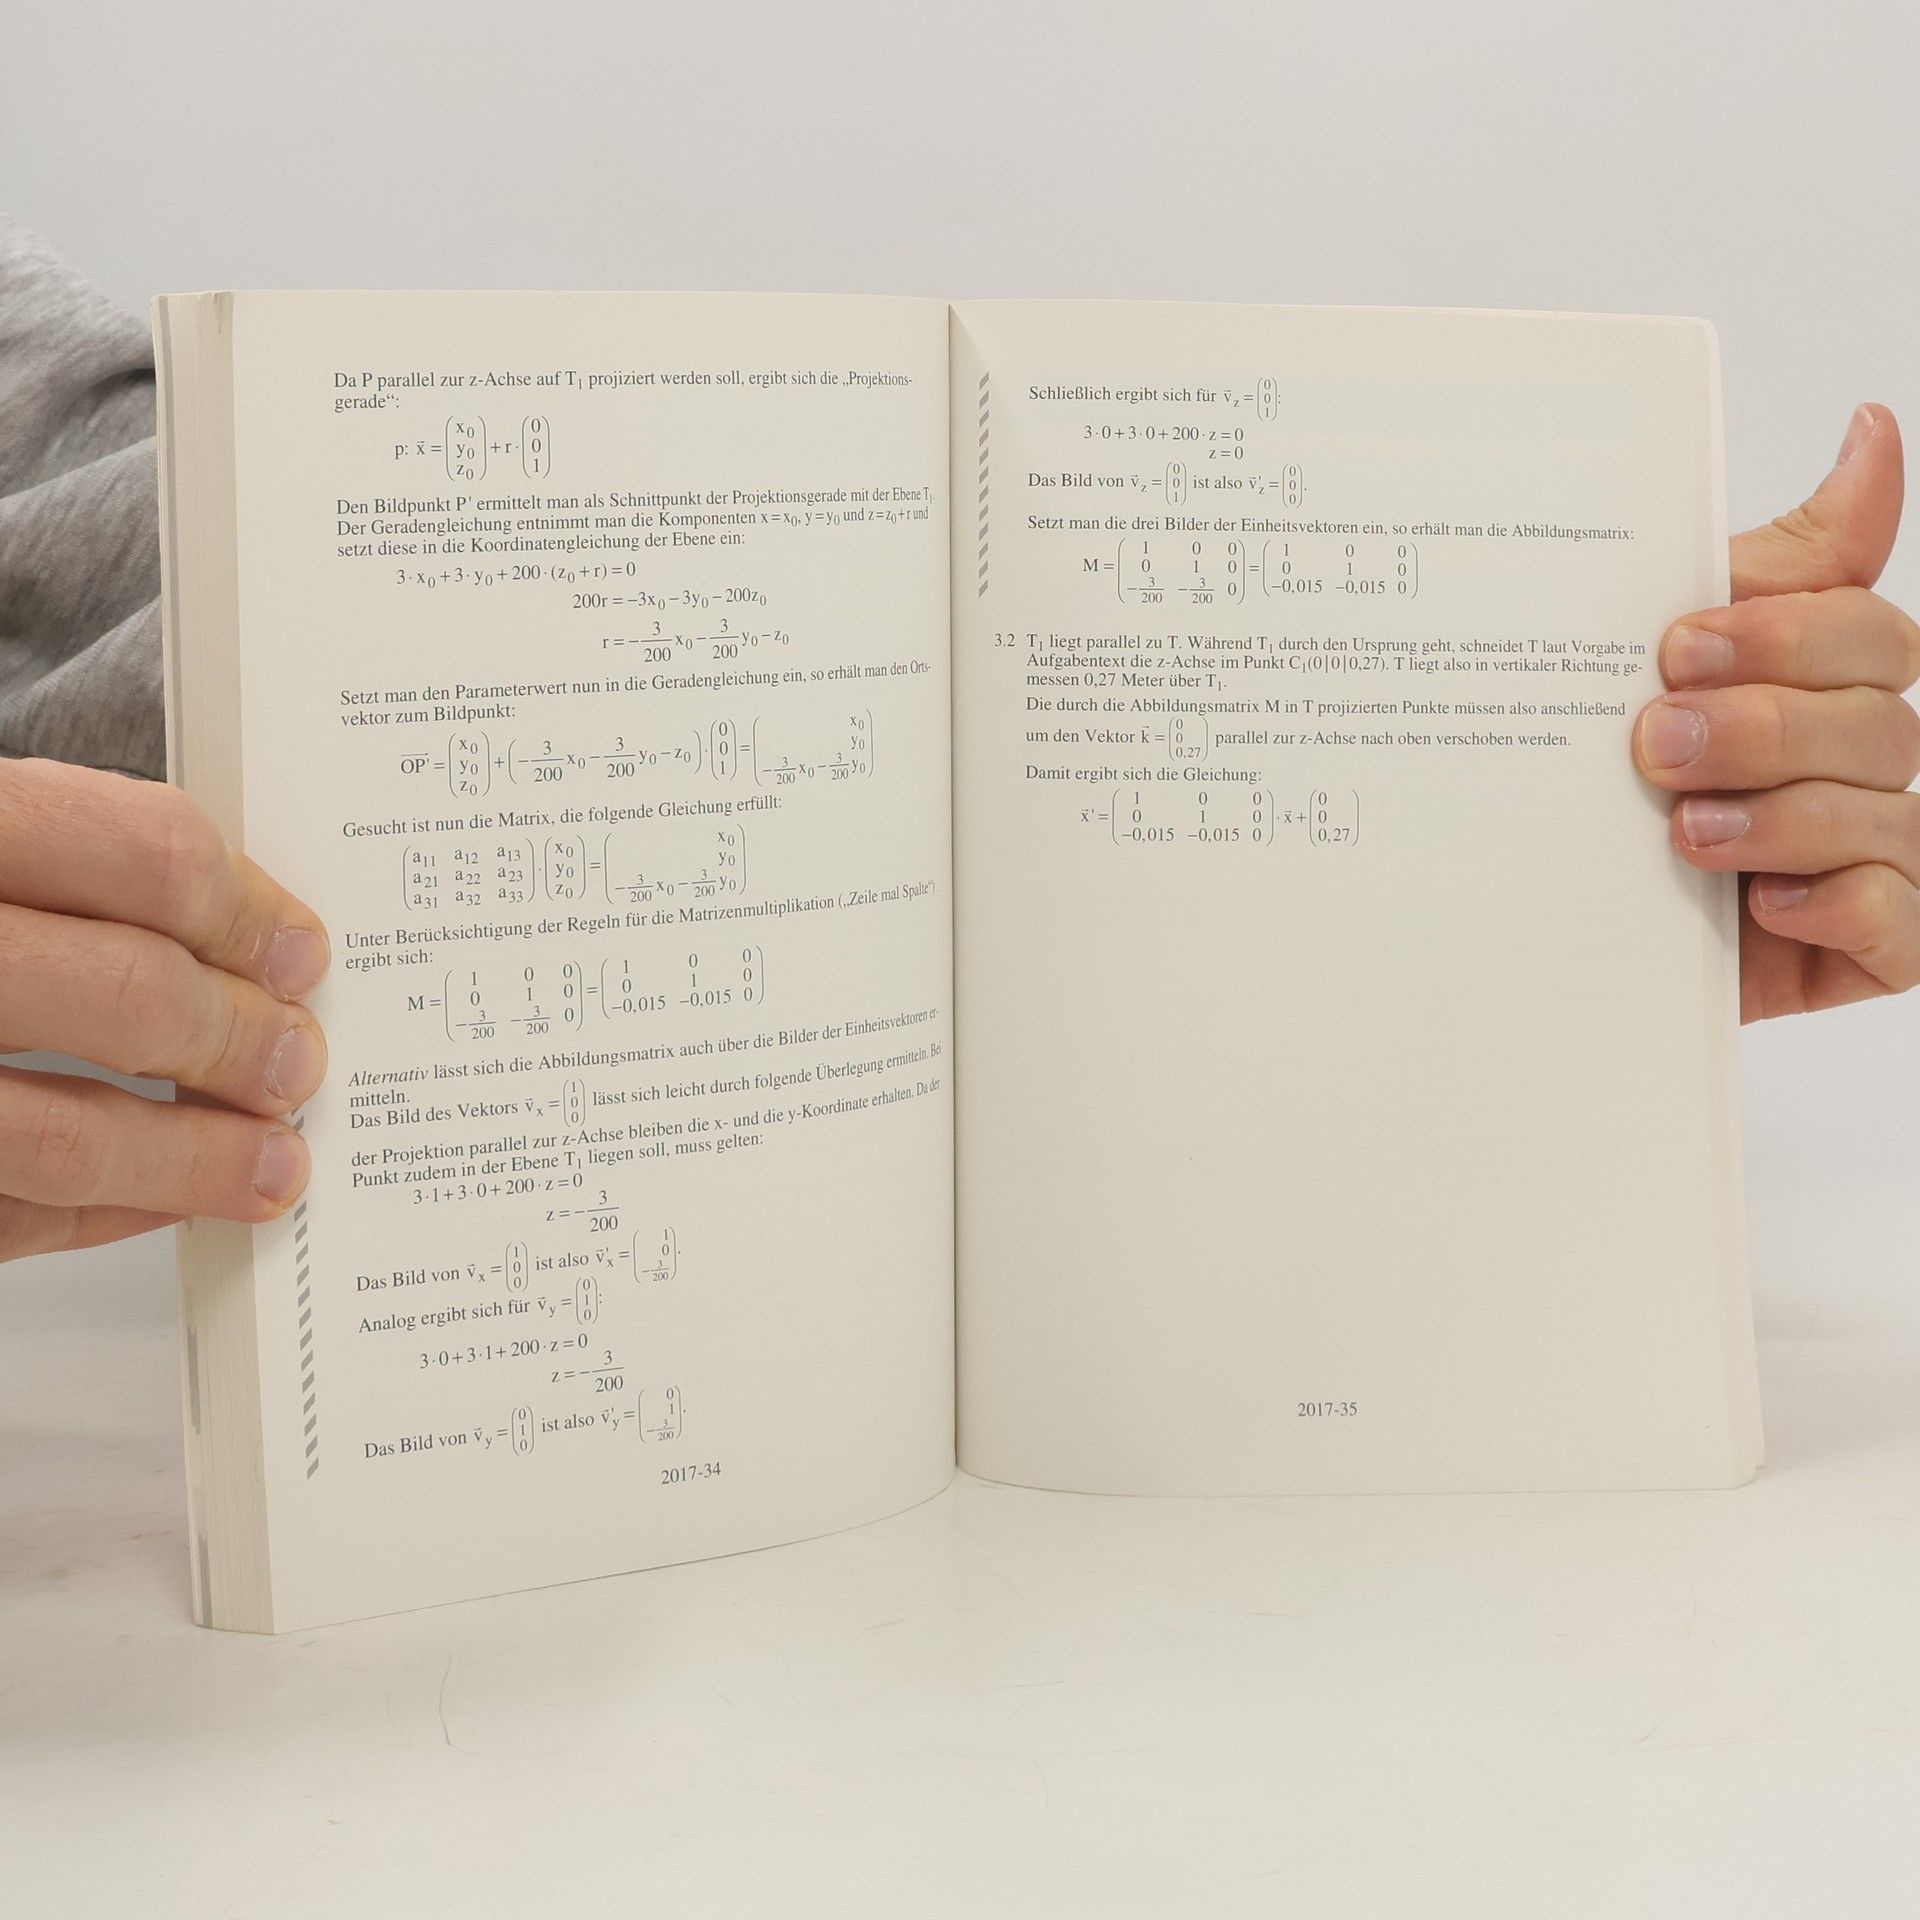 Da P parallel zur z-Achse auf T₁ projiziert werden soll, ergibt sich die „Projektions-
gerade“:
p: x⃗ = (x₀ y₀ z₀) + r · (0 0 1)
Den Bildpunkt P' ermittelt man als Schnittpunkt der Projektionsgerade mit der Ebene T₁.
Der Geradengleichung entnimmt man die Komponenten x = x₀, y = y₀ und z = z₀ + r und
setzt diese in die Koordinatengleichung der Ebene ein:
3 · x₀ + 3 · y₀ + 200 · (z₀ + r) = 0
200r = −3x₀ − 3y₀ − 200z₀
r = −3/200 x₀ − 3/200 y₀ − z₀
Setzt man den Parameterwert nun in die Geradengleichung ein, so erhält man den Orts-
vektor zum Bildpunkt:
OP' = (x₀ y₀ z₀) + (−3/200 x₀ − 3/200 y₀ − z₀) · (0 0 1) = (x₀ y₀ −3/200 x₀ − 3/200 y₀)
Gesucht ist nun die Matrix, die folgende Gleichung erfüllt:
(a₁₁ a₁₂ a₁₃ a₂₁ a₂₂ a₂₃ a₃₁ a₃₂ a₃₃) · (x₀ y₀ z₀) = (x₀ y₀ −3/200 x₀ − 3/200 y₀)
Unter Berücksichtigung der Regeln für die Matrizenmultiplikation („Zeile mal Spalte“)
ergibt sich:
M = (1 0 0 0 1 0 −3/200 −3/200 0) = (1 0 0 0 1 0 −0,015 −0,015 0)
Alternativ lässt sich die Abbildungsmatrix auch über die Bilder der Einheitsvektoren er-
mitteln.
Das Bild des Vektors v⃗ₓ = (1 0 0) lässt sich leicht durch folgende Überlegung ermitteln. Bei
der Projektion parallel zur z-Achse bleiben die x- und die y-Koordinate erhalten. Da der
Punkt zudem in der Ebene T₁ liegen soll, muss gelten:
3 · 1 + 3 · 0 + 200 · z = 0
z = −3/200
Das Bild von v⃗ₓ = (1 0 0) ist also v⃗'ₓ = (1 0 −3/200).
Analog ergibt sich für v⃗_y = (0 1 0):
3 · 0 + 3 · 1 + 200 · z = 0
z = −3/200
Das Bild von v⃗_y = (0 1 0) ist also v⃗'_y = (0 1 −3/200).
2017-34
Schließlich ergibt sich für v⃗_z = (0 0 1):
3 · 0 + 3 · 0 + 200 · z = 0
z = 0
Das Bild von v⃗_z = (0 0 1) ist also v⃗'_z = (0 0 0).
Setzt man die drei Bilder der Einheitsvektoren ein, so erhält man die Abbildungsmatrix:
M = (1 0 0 0 1 0 −3/200 −3/200 0) = (1 0 0 0 1 0 −0,015 −0,015 0)
3.2 T₁ liegt parallel zu T. Während T₁ durch den Ursprung geht, schneidet T laut Vorgabe im
Aufgabentext die z-Achse im Punkt C₁(0|0|0,27). T liegt also in vertikaler Richtung ge-
messen 0,27 Meter über T₁.
Die durch die Abbildungsmatrix M in T projizierten Punkte müssen also anschließend
um den Vektor k⃗ = (0 0 0,27) parallel zur z-Achse nach oben verschoben werden.
Damit ergibt sich die Gleichung:
x⃗' = (1 0 0 0 1 0 −0,015 −0,015 0) · x⃗ + (0 0 0,27)
2017-35